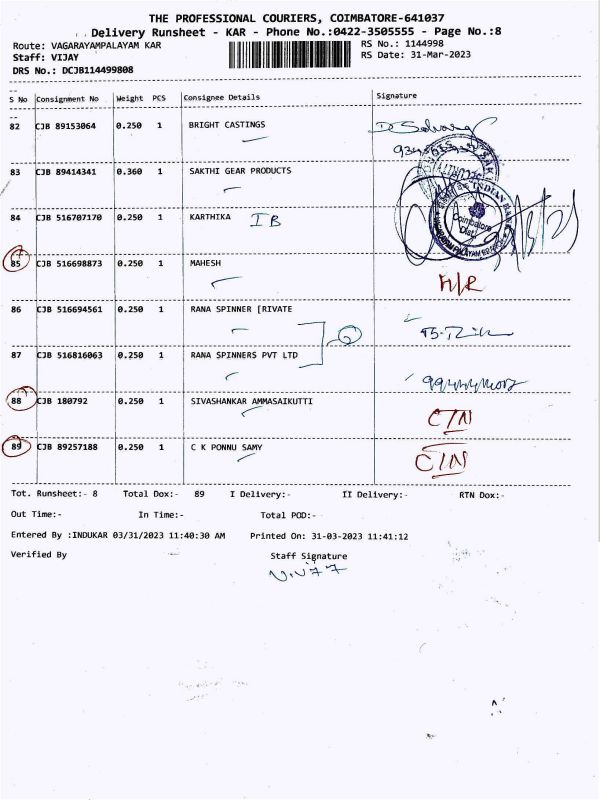 THE PROFESSIONAL COURIERS, COIMBATORE-641037
Delivery Runsheet - KAR - Phone No.:0422-3505555 - Page No.:8
Route: VAGARAYAMPALAYAM KAR RS No.: 1144998
Staff: VIJAY RS Date: 31-Mar-2023
DRS No.: DCJB114499808
S No Consignment No Weight PCS Consignee Details Signature
82 CJB 89153064 0.250 1 BRIGHT CASTINGS
83 CJB 89414341 0.360 1 SAKTHI GEAR PRODUCTS
84 CJB 516707170 0.250 1 KARTHIKA IB
INDIAN BANK
Coimbatore
Dist.
85 CJB 516698873 0.250 1 MAHESH
86 CJB 516694561 0.250 1 RANA SPINNER [RIVATE
87 CJB 516816063 0.250 1 RANA SPINNERS PVT LTD
88 CJB 180792 0.250 1 SIVASHANKAR AMMASAIKUTTI C/IN
89 CJB 89257188 0.250 1 C K PONNU SAMY C/IN
Tot. Runsheet:- 8 Total Dox:- 89 I Delivery:- II Delivery:- RTN Dox:-
Out Time:- In Time:- Total POD:-
Entered By :INDUKAR 03/31/2023 11:40:30 AM Printed On: 31-03-2023 11:41:12
Verified By Staff Signature